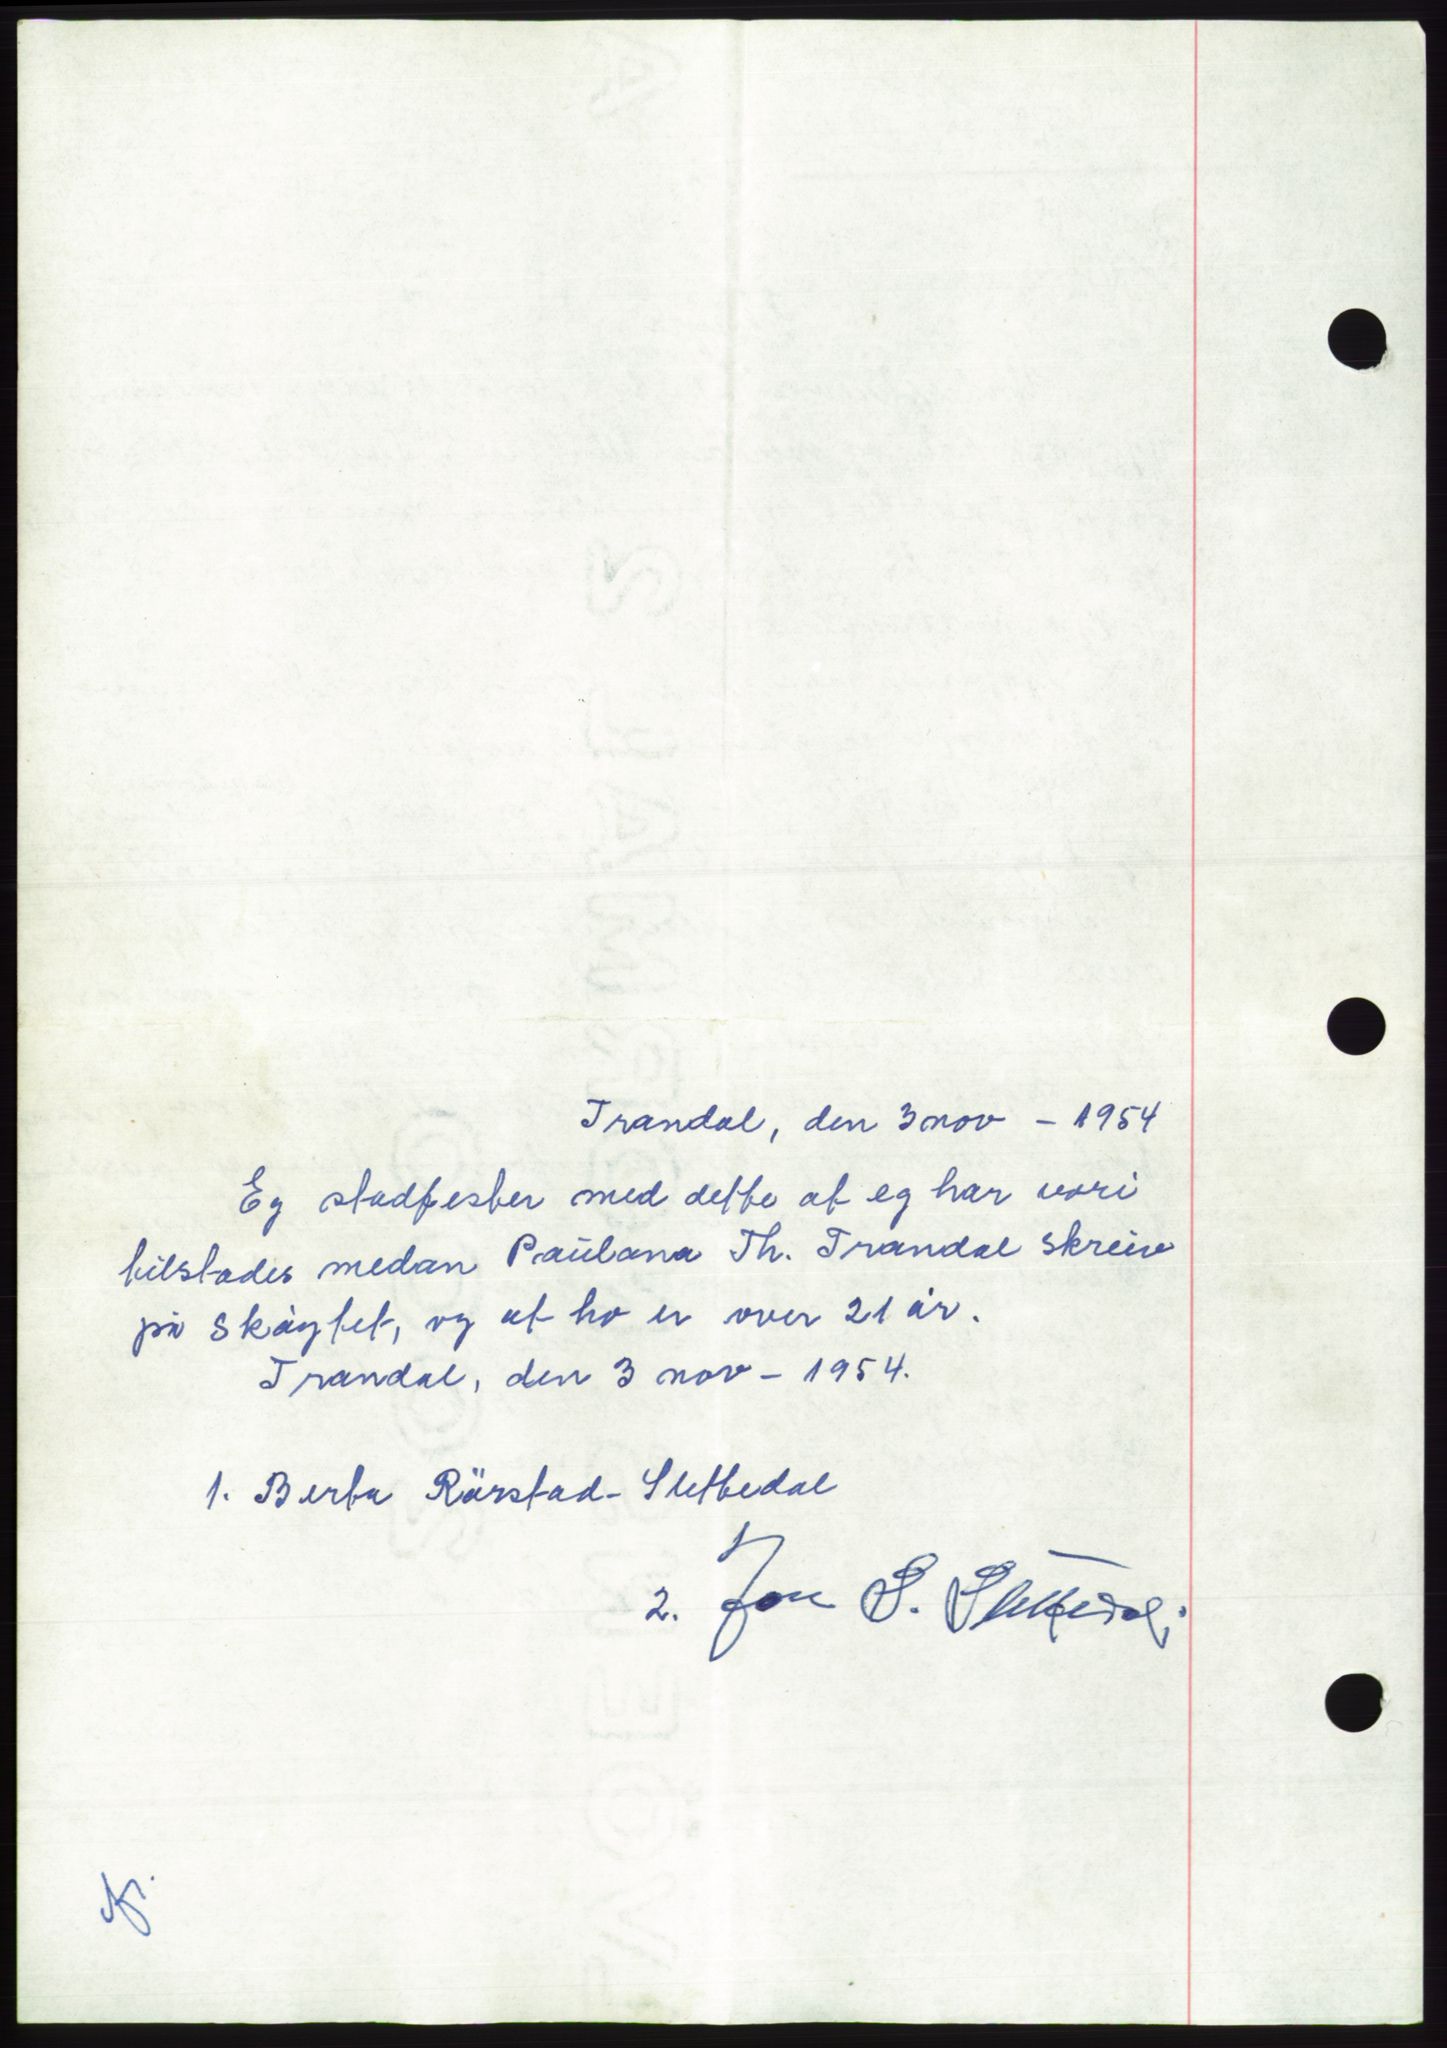 Trandal, den 3 nov - 1954
Eg stadfester med dette at eg har vori
tilstades medan Paulana Th. Trandal skreiv
på skåytet, og at ho er over 21 år.
Trandal, den 3 nov - 1954.
1. Berta Rörstad - Slettedal
2. Jon S. Slettedal.